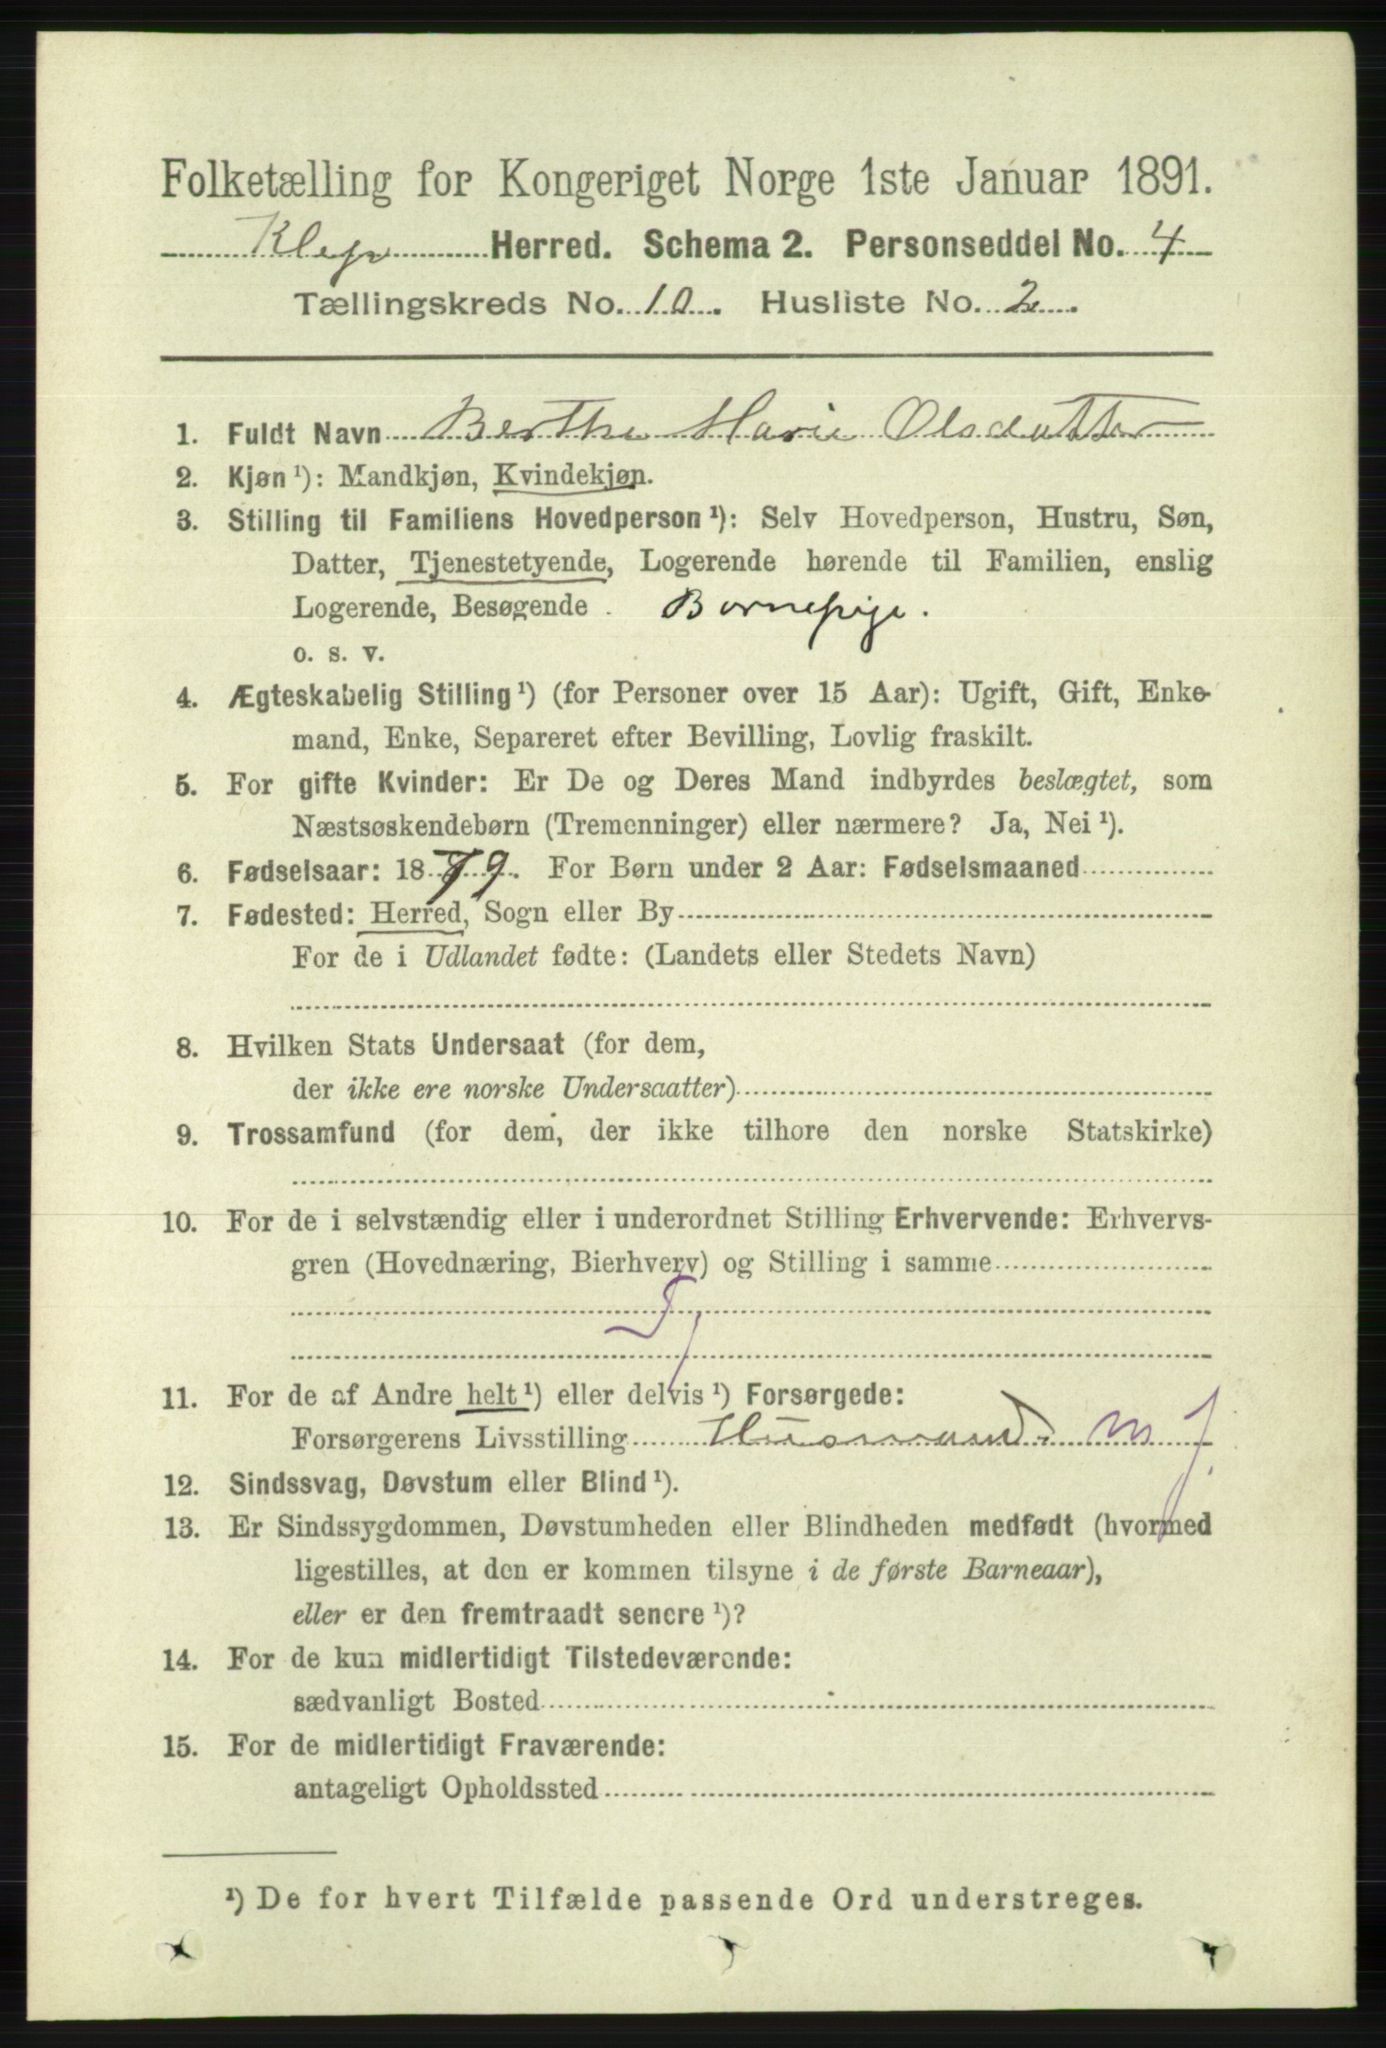 Folketælling for Kongeriget Norge 1ste Januar 1891.
Klepp Herred. Schema 2. Personseddel No. 4
Tællingskreds No. 10. Husliste No. 2.
1. Fuldt Navn Berthe Marie Olsdatter
2. Kjøn ¹): Mandkjøn, Kvindekjøn.
3. Stilling til Familiens Hovedperson ¹): Selv Hovedperson, Hustru, Søn,
Datter, Tjenestetyende, Logerende hørende til Familien, enslig
Logerende, Besøgende . Bornepige.
o. s. v.
4. Ægteskabelig Stilling ¹) (for Personer over 15 Aar): Ugift, Gift, Enke-
mand, Enke, Separeret efter Bevilling, Lovlig fraskilt.
5. For gifte Kvinder: Er De og Deres Mand indbyrdes beslægtet, som
Næstsøskendebørn (Tremenninger) eller nærmere? Ja, Nei ¹).
6. Fødselsaar: 1879. For Børn under 2 Aar: Fødselsmaaned
7. Fødested: Herred, Sogn eller By
For de i Udlandet fødte: (Landets eller Stedets Navn)
8. Hvilken Stats Undersaat (for dem,
der ikke ere norske Undersaatter)
9. Trossamfund (for dem, der ikke tilhore den norske Statskirke)
10. For de i selvstændig eller i underordnet Stilling Erhvervende: Erhvervs-
gren (Hovednæring, Bierhverv) og Stilling i samme
Tj
11. For de af Andre helt ¹) eller delvis ¹) Forsørgede:
Forsørgerens Livsstilling Husmand. m J.
12. Sindssvag, Døvstum eller Blind ¹).
13. Er Sindssygdommen, Døvstumheden eller Blindheden medfødt (hvormed
ligestilles, at den er kommen tilsyne i de første Barneaar),
eller er den fremtraadt senere ¹)?
14. For de kun midlertidigt Tilstedeværende:
sædvanligt Bosted
15. For de midlertidigt Fraværende:
antageligt Opholdssted
¹) De for hvert Tilfælde passende Ord understreges.